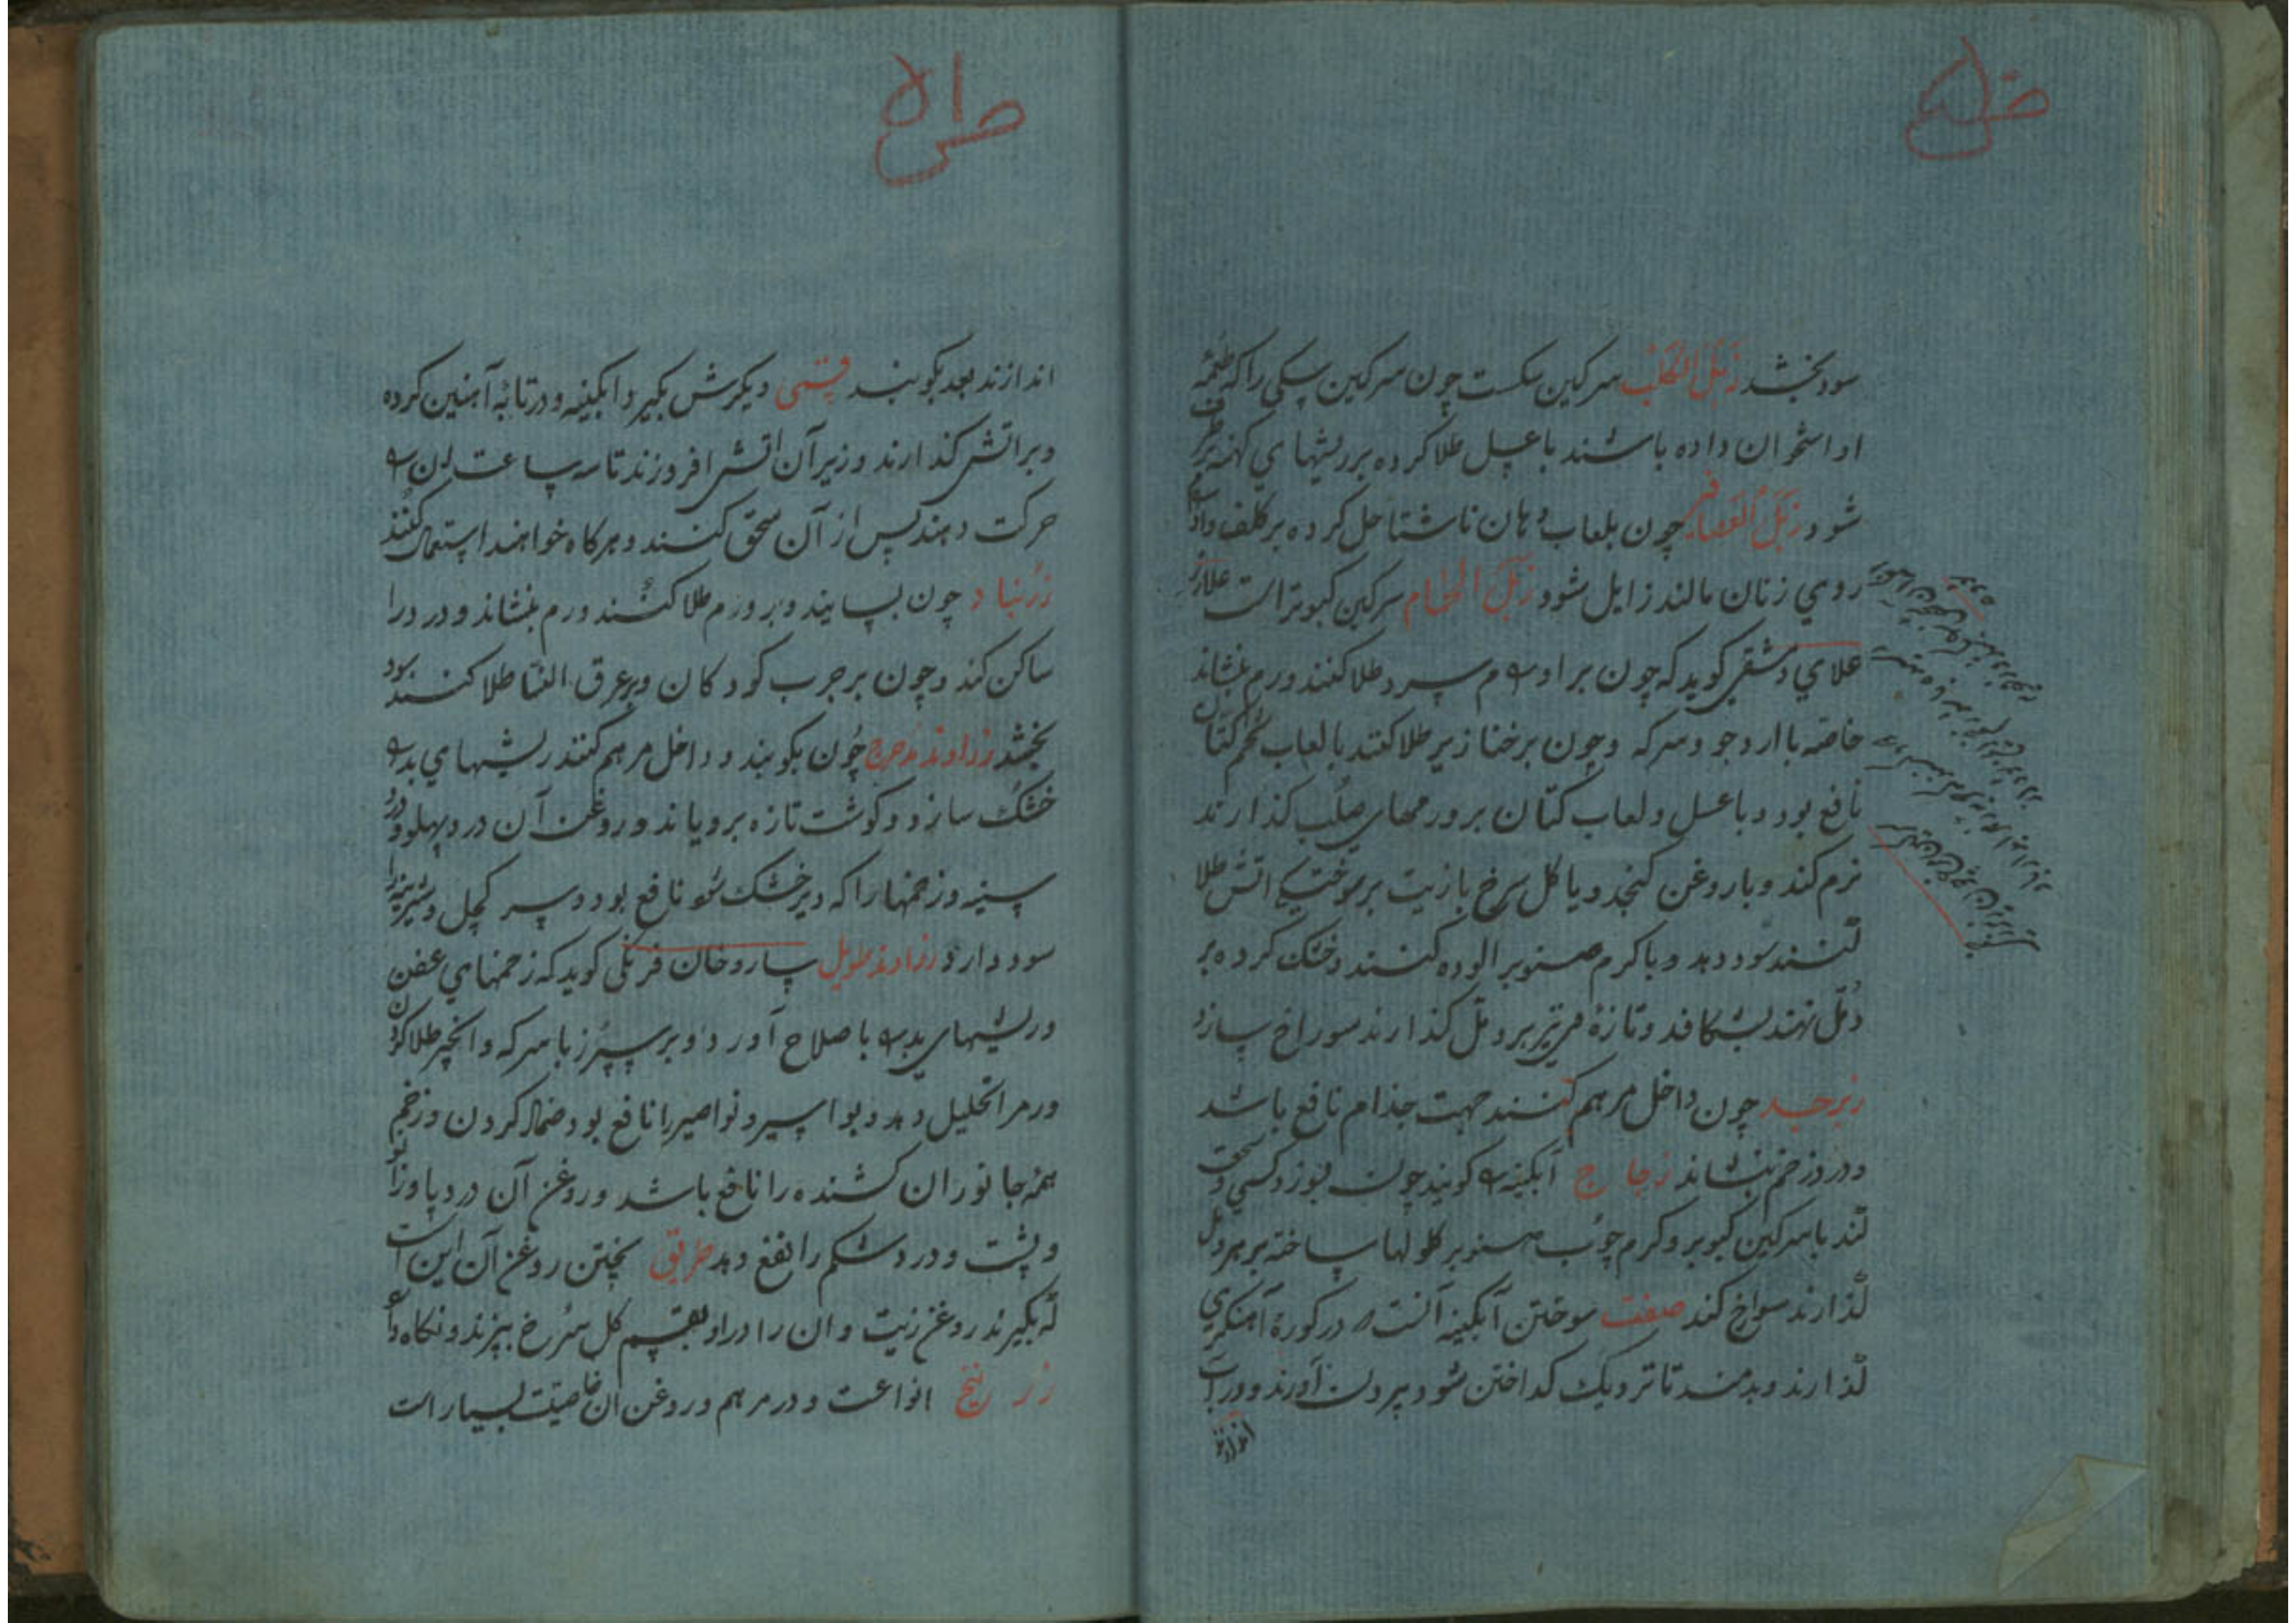 ص۵۰
سود بخشد زبل الکلب سرکین سکست چون سرکین سکی را که طعمه
او استخوان داده باشند با عسل طلا کرده بر ریشهای کهنه
شود زبل العصافیر چون بلعاب دهان ناشتا حل کرده بر کلف
روی زنان مالند زایل شود زبل الحمام سرکین کبوتر است
علای دمشقی کوید که چون بر اورام سرد طلا کنند ورم بنشاند
خاصه با ارد جو و سرکه و چون بر خنازیر طلا کنند با لعاب تخم کتان
نافع بود و با عسل و لعاب کتان بر ورمهای صلب کذارند
نرم کند و با روغن کنجد و یا کل سرخ با زیت بر سوختکی اتش طلا
کنند سود دهد و با کرم صنوبر الوده کنند و خشک کرده بر
دمل نهند بشکافد و تازهٔ بر دمل کذارند سوراخ سازد
زبرجد چون داخل مرهم کنند جهت جذام نافع باشد
و درد زخم بنشاند زجاج آبکینه را کویند چون
کند با سرکین کبوتر و کرم چوب صنوبر کلولها ساخته بر هر دمل
کذارند سوراخ کند صفت سوختن آبکینه آنست که در کورهٔ آهنکری
کذارند و بدمند تا نزدیک کداختن شود بیرون آورند و در آب
اندازند
ص۵۱
اندازند بعد بکوبند قسمی دیکرش بکیرد ابکینه و در تابهٔ آهنین کرده
و بر اتش کذارند و زیر آن اتش افروزند تا سه ساعت
حرکت دهند پس از آن سحق کنند و هرکاه خواهند استعمال کنند
زرنباد چون بسایند و بر ورم طلا کنند ورم بنشاند و درد را
ساکن کند و چون بر جرب کودکان و بر عرق النسا طلا کنند سود
بخشد زراوند مدحرج چون بکوبند و داخل مرهم کنند ریشهای بد را
خشک سازد و کوشت تازه برویاند و روغن آن درد پهلو و درد
سینه و زخمها را که دیر خشک شود نافع بود و سر کچل و شیرینه را
سود دارد زراوند طویل ساروخان فرنکی کوید که زخمهای عفن
و ریشهای بد را باصلاح آورد و بر سپرز با سرکه و انجیر طلا کردن
ورم را تحلیل دهد و بواسیر و نواصیر را نافع بود ضماد کردن و زخم
همه جانوران کشنده را نافع باشد و روغن آن درد پا و زانو
و پشت و درد شکم را نفع دهد طریق پختن روغن آن این است
که بکیرند روغن زیت و ان را در او بقسم کل سرخ بپزند و نکاه دارند
زرنیخ انواعست و در مرهم و روغن ان خاصیت بسیار است